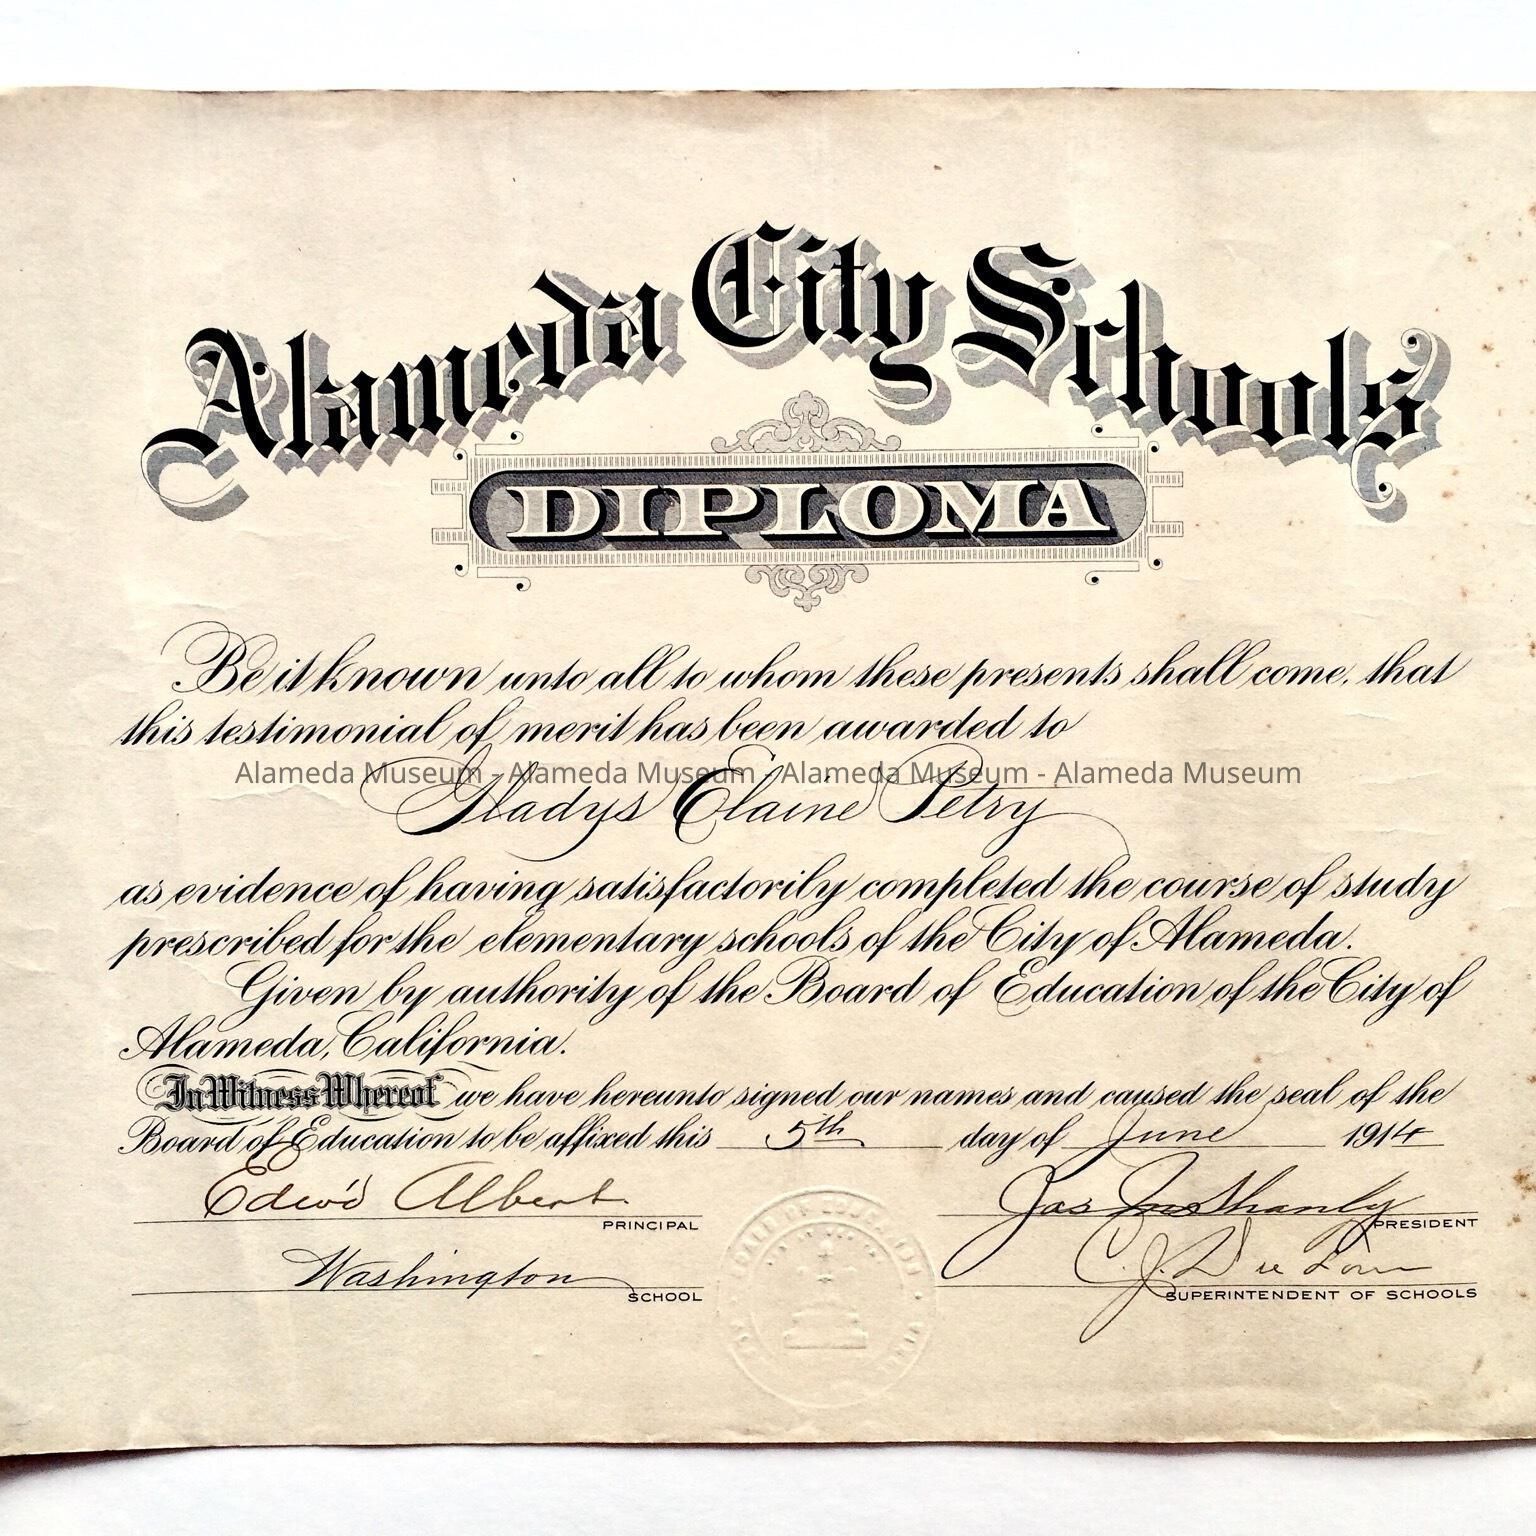 Alameda City Schools
DIPLOMA
Be it known unto all to whom these presents shall come, that
this testimonial of merit has been awarded to
Alameda Museum - Alameda Museum - Alameda Museum - Alameda Museum
Gladys Elaine Petry
as evidence of having satisfactorily completed the course of study
prescribed for the elementary schools of the City of Alameda.
Given by authority of the Board of Education of the City of
Alameda, California.
In Witness Whereof we have hereunto signed our names and caused the seal of the
Board of Education to be affixed this 5th day of June 1914
Edw'd Albert
PRINCIPAL
Jas
PRESIDENT
Washington
SCHOOL
C. J.
SUPERINTENDENT OF SCHOOLS